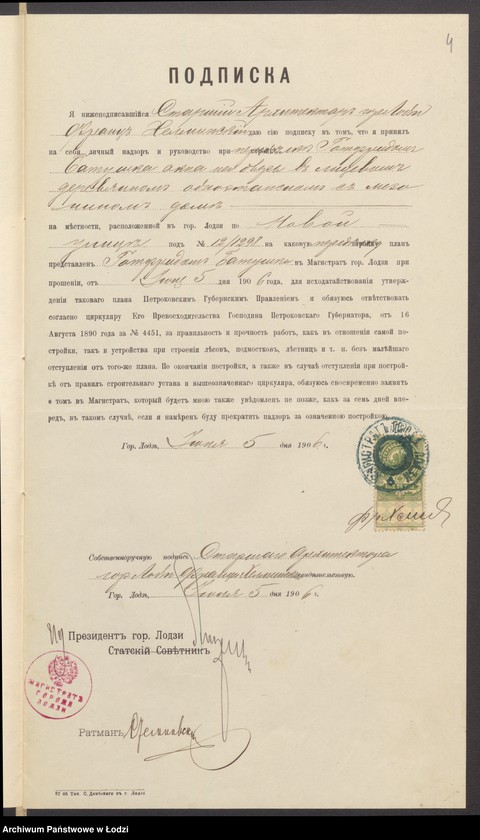 4
ПОДПИСКА
Я нижеподписавшійся Старшій Архитекторъ гор. Лодзи
Францъ Хелминскій даю сію подписку въ томъ, что я принялъ
на себя личный надзоръ и руководство при
деревянномъ одноэтажномъ съ мезо
нином домѣ
на мѣстности, расположенной въ гор. Лодзи по Новой
улицѣ подъ № 12/1298 на каковую планъ
представленъ Готфридомъ въ Магистратъ гор. Лодзи при
прошеніи, отъ Іюня 5 дня 1906 года, для исходатайствованія утвержде-
нія таковаго плана Петроковскимъ Губернскимъ Правленіемъ и обязуюсь отвѣтствовать
согласно циркуляру Его Превосходительства Господина Петроковскаго Губернатора, отъ 16
Августа 1890 года за № 4451, за правильность и прочность работъ, какъ въ отношеніи самой по-
стройки, такъ и устройства при строеніи лѣсовъ, подмостковъ, лѣстницъ и т. п. безъ малѣйшаго
отступленія отъ того-же плана. По окончаніи постройки, а также въ случаѣ отступленія при построй-
кѣ отъ правилъ строительнаго устава и вышеозначеннаго циркуляра, обязуюсь своевременно заявить
о томъ въ Магистратъ, который будетъ мною также увѣдомленъ не позже, какъ за семь дней впе-
редъ, въ такомъ случаѣ, если я намѣренъ буду прекратить надзоръ за означенною постройкою.
Гор. Лодзь, Іюня 5 дня 1906 г.
МАГИСТРАТЪ
Собственноручную подпись Старшаго Архитектора
гор. Лодзи Франца Хелминскаго свидѣтельствую.
Гор. Лодзь, Іюня 5 дня 1906 г.
Президентъ гор. Лодзи
Статскій Совѣтникъ
МАГИСТРАТЪ
ГОРОДА
ЛОДЗИ
Ратманъ
Тип. С. Дембскаго въ г. Лодзи
Archiwum Państwowe w Łodzi